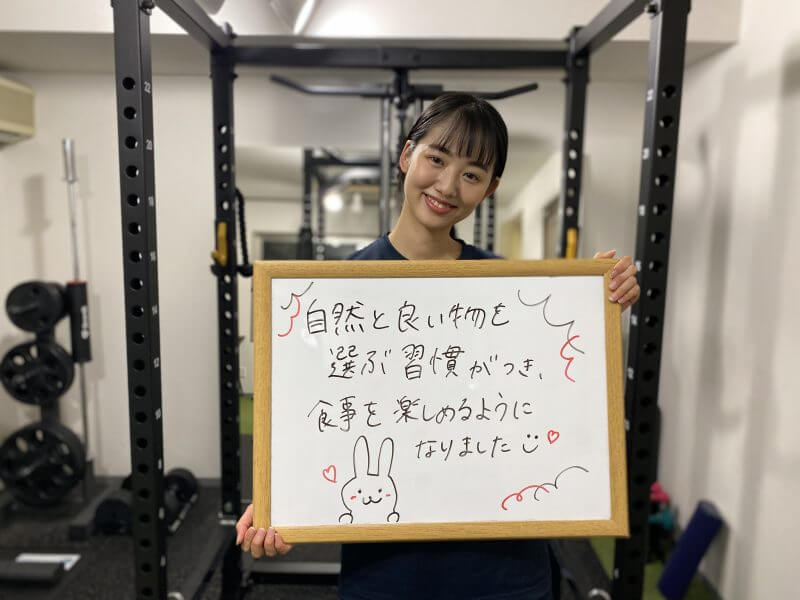 自然と良い物を
選ぶ習慣がつき、
食事を楽しめるように
なりました